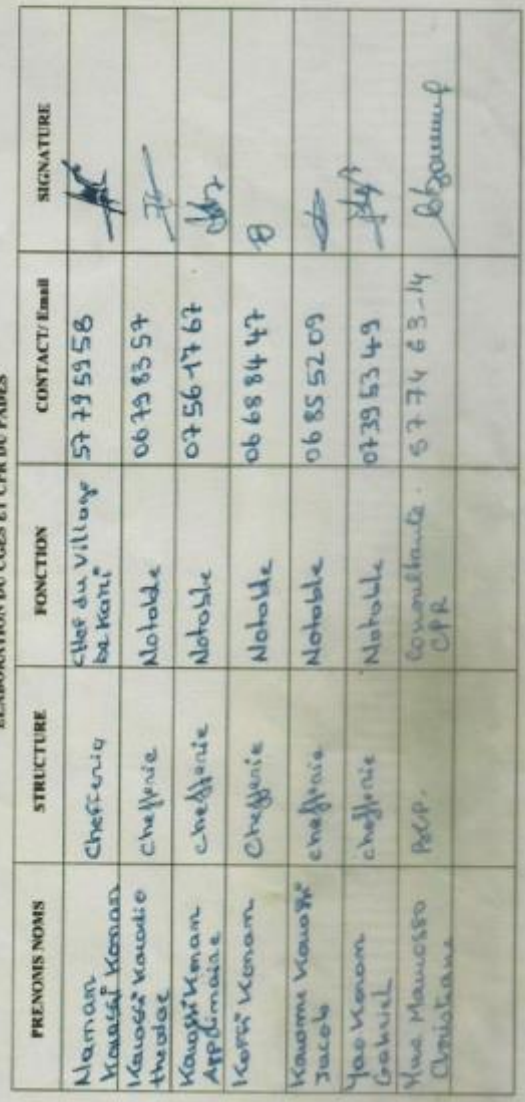 ELABORATION DU CGES ET CPR DU PADES
PRENOMS NOMS STRUCTURE FONCTION CONTACT/ Email SIGNATURE
Naman Kouassi Konan Chefferie Chef du village 57 79 59 58
Kouassi Kouadio theodore chefferie Notable 06 79 83 57
Kouassi Konan Appolinaire chefferie Notable 07 56 17 67
Koffi Konan Chefferie Notable 06 68 84 47
Kouame Kouassi Jacob chefferie Notable 06 85 52 09
Yao Konan Gabriel chefferie Notable 07 39 53 49
Christiane Consultante CPR 57 74 63-14